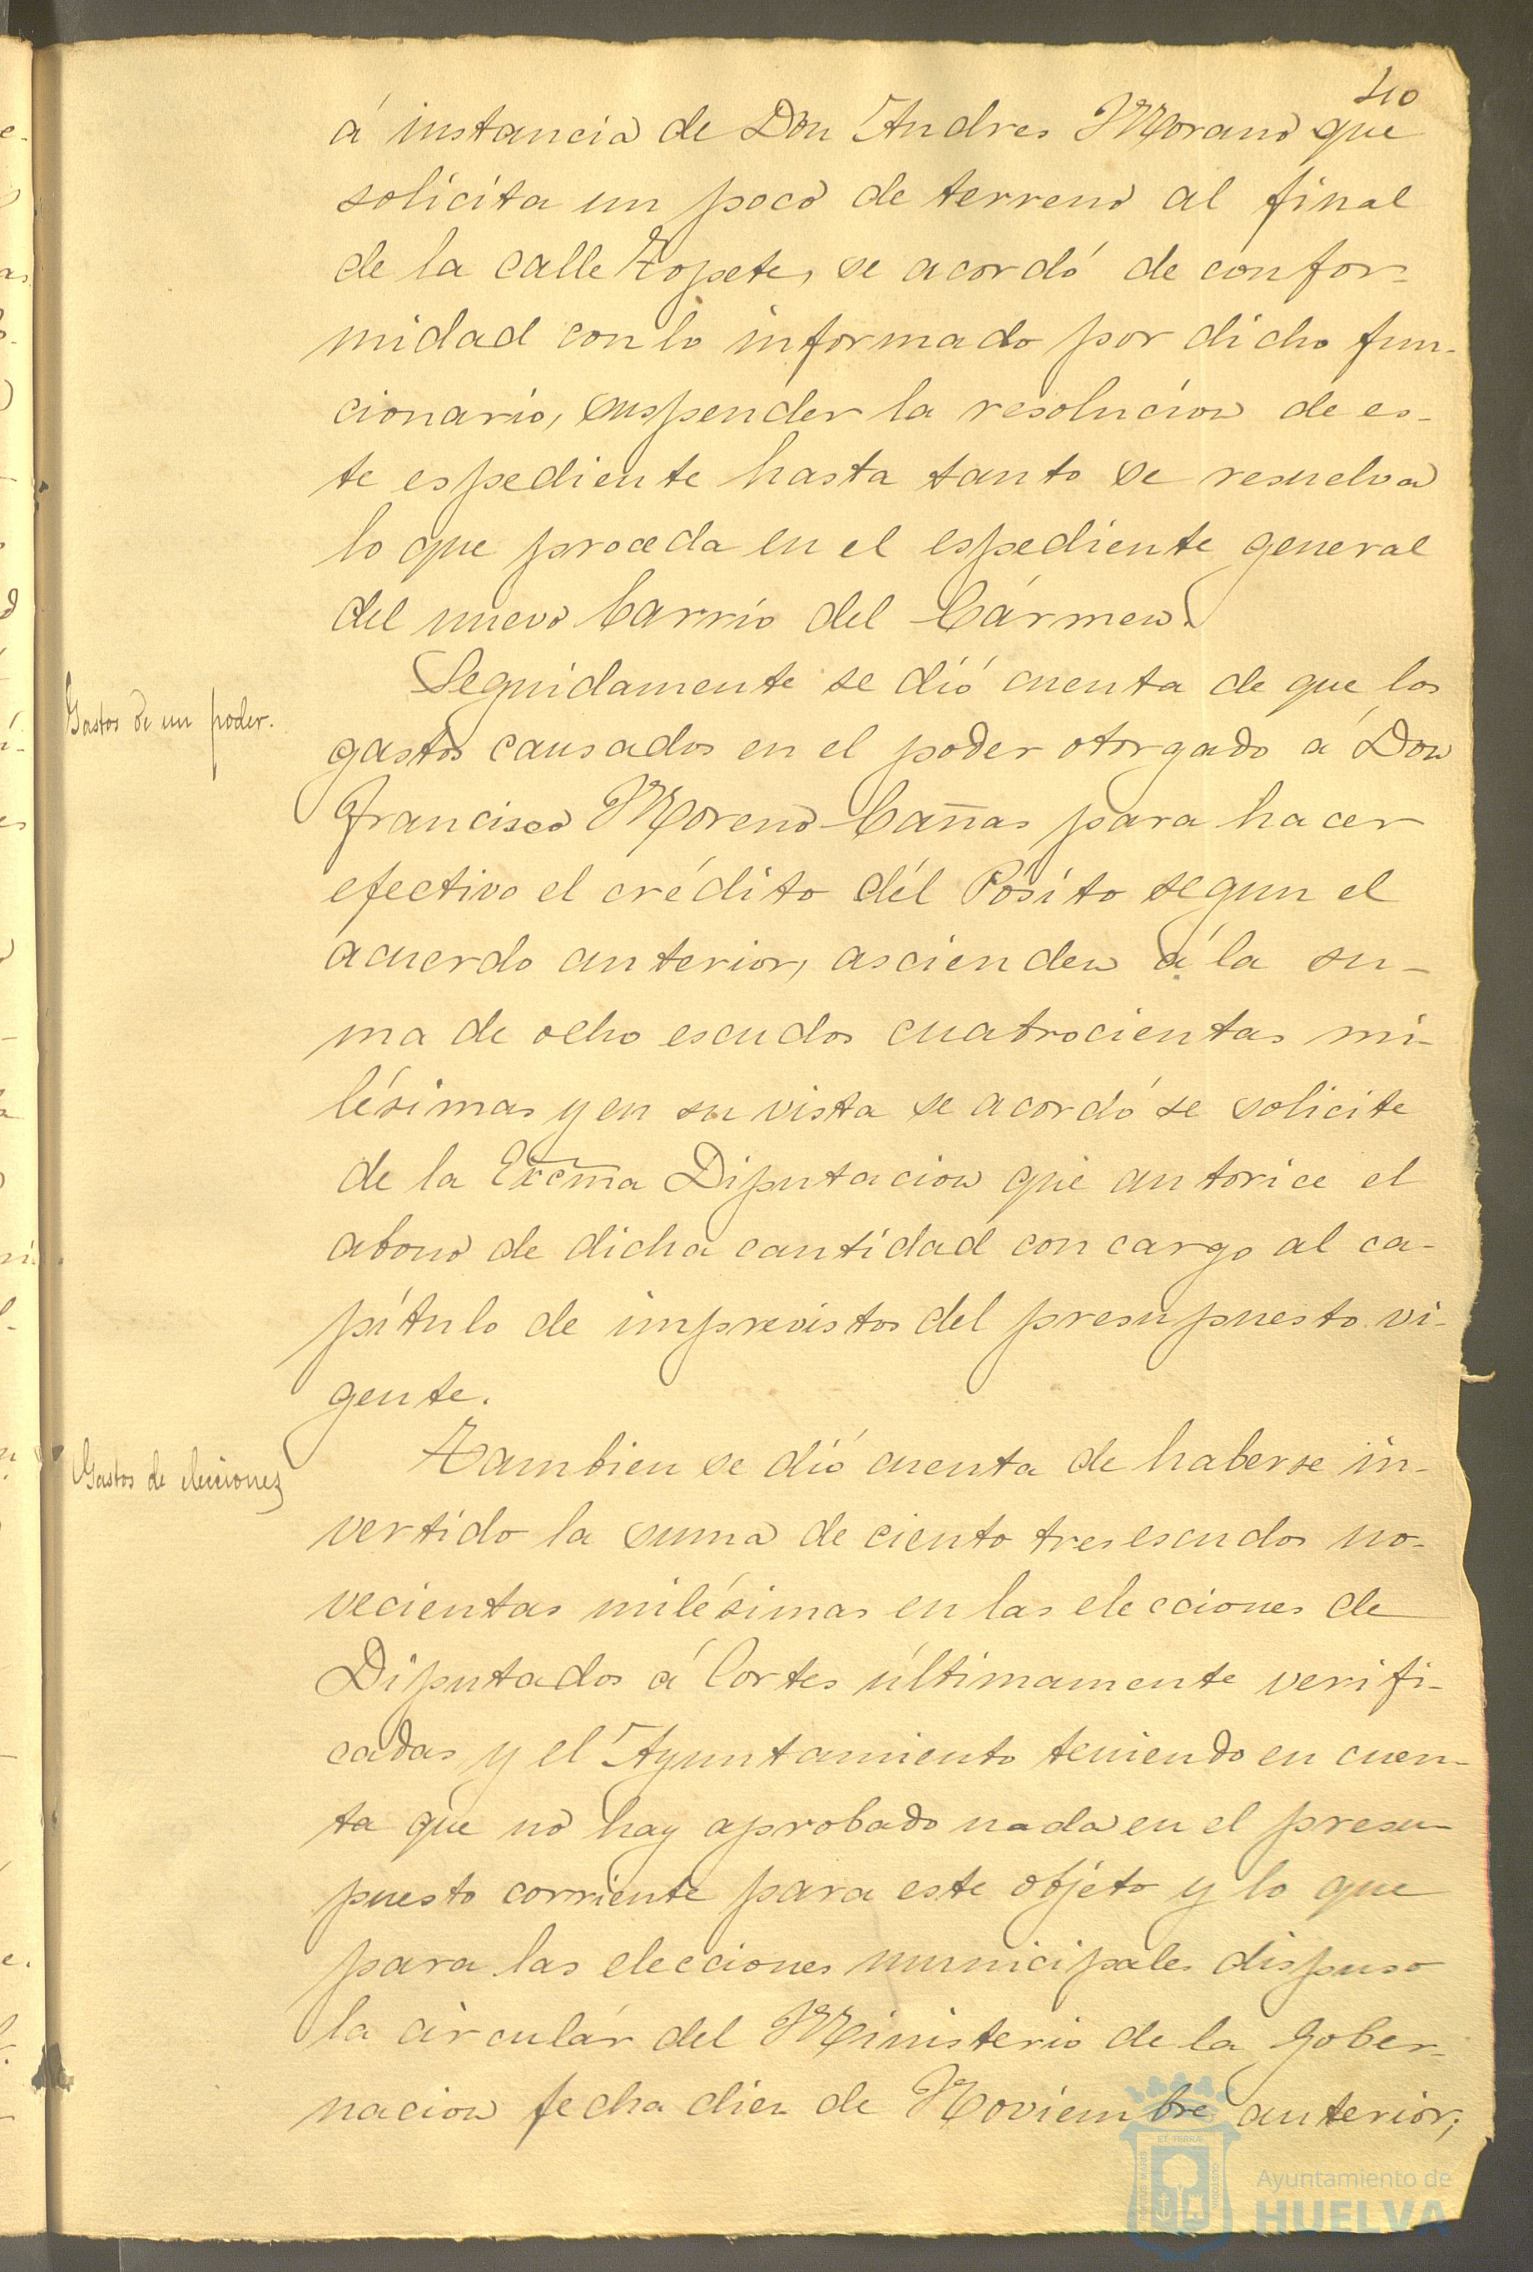 40
á instancia de Don Andres Morano que
solicita un poco de terreno al final
de la calle Topete, se acordó de confor-
midad con lo informado por dicho fun-
cionario, suspender la resolucion de es-
te espediente hasta tanto se resuelva
lo que proceda en el espediente general
del nuevo barrio del Cármen.
Gastos de un poder.
Seguidamente se dió cuenta de que los
gastos causados en el poder otorgado á Don
Francisco Moreno Cañas para hacer
efectivo el crédito dél Pósito segun el
acuerdo anterior, ascienden á la su-
ma de ocho escudos cuatrocientas mi-
lésimas y en su vista se acordó se solicite
de la Excma Diputacion que autorice el
abono de dicha cantidad con cargo al ca-
pítulo de imprevistos del presupuesto vi-
gente.
Gastos de elecciones
Tambien se dió cuenta de haberse in-
vertido la suma de ciento tres escudos no-
vecientas milésimas en las elecciones de
Diputados á Cortes últimamente verifi-
cadas y el Ayuntamiento teniendo en cuen-
ta que no hay aprobado nada en el presu-
puesto corriente para este objeto y lo que
para las elecciones municipales dispuso
la circulár del Ministerio de la Gober-
nacion fecha diez de Noviembre anterior;
Ayuntamiento de
HUELVA